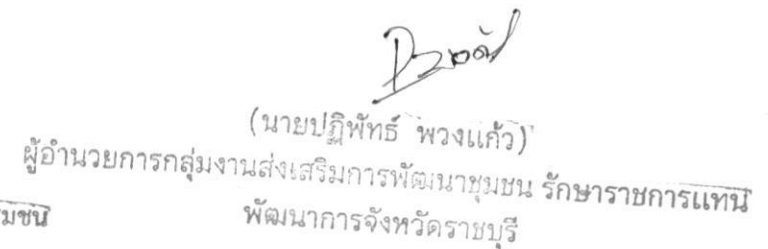 (นายปฏิพัทธ์ พวงแก้ว)
ผู้อำนวยการกลุ่มงานส่งเสริมการพัฒนาชุมชน รักษาราชการแทน
พัฒนาการจังหวัดราชบุรี